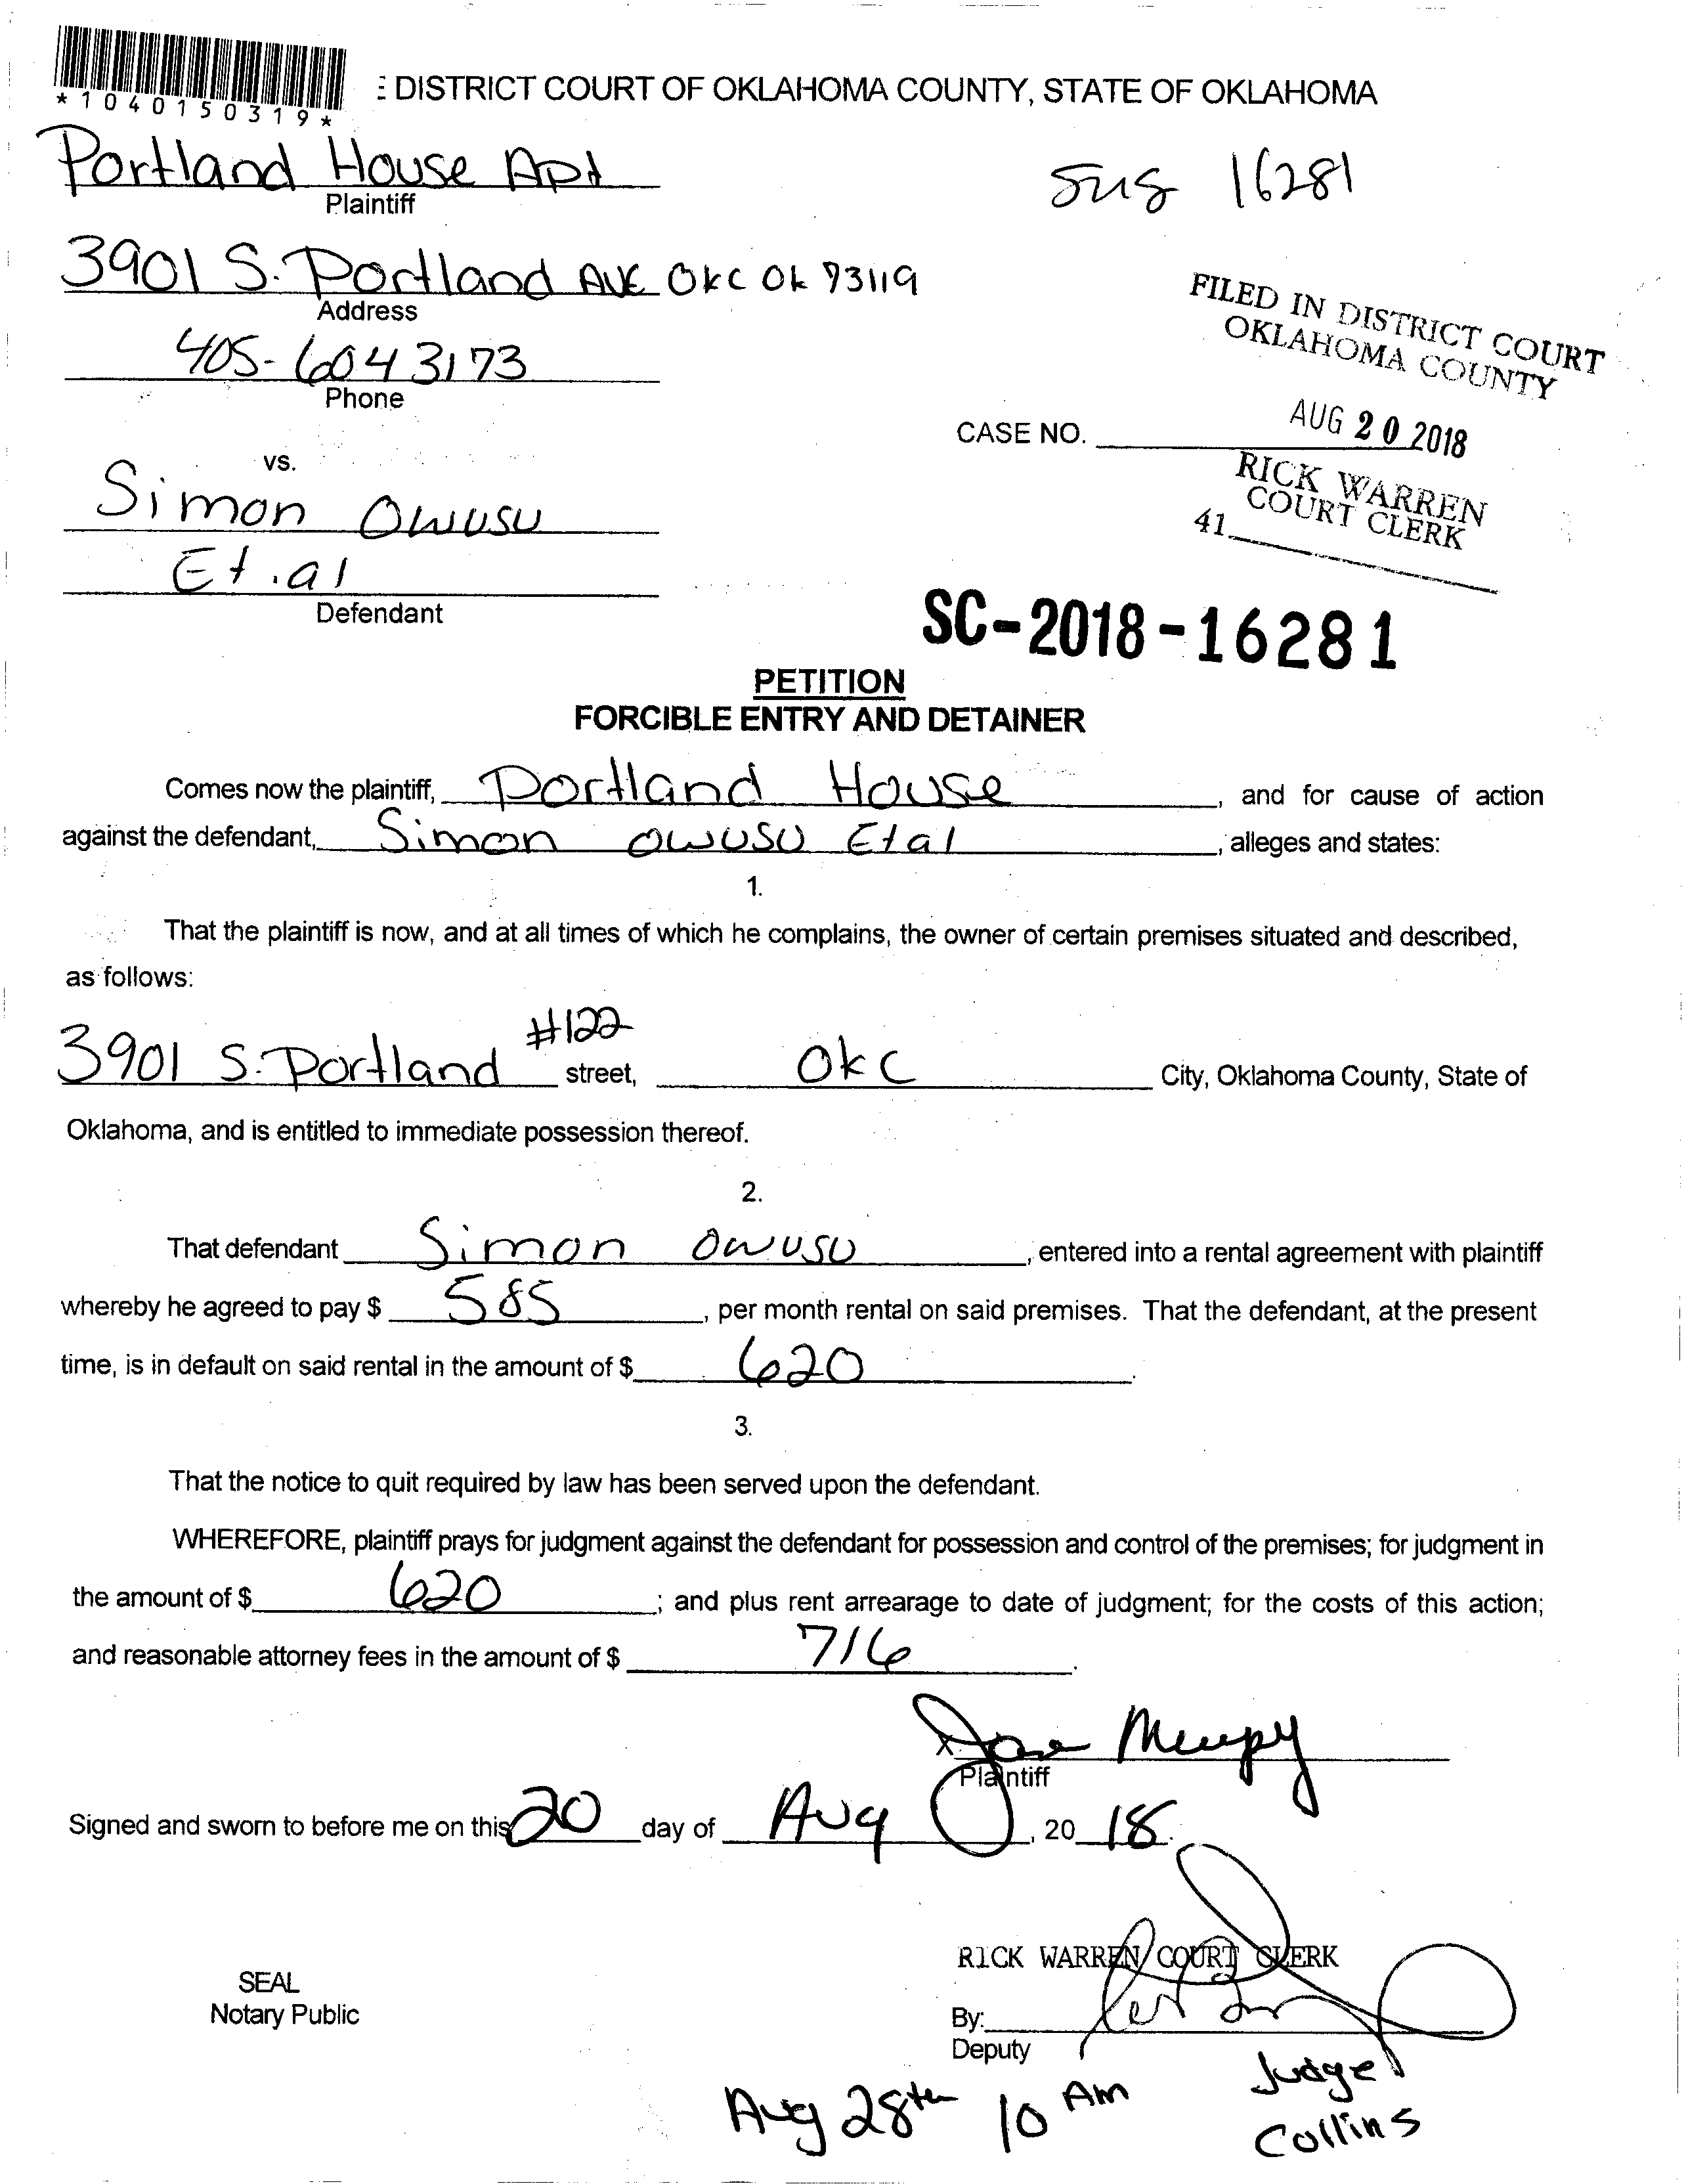 *1040150319*
DISTRICT COURT OF OKLAHOMA COUNTY, STATE OF OKLAHOMA
Portland House Apt
Plaintiff
16281
3901 S. Portland Ave OKC Ok 73119
Address
405-604 3173
Phone
FILED IN DISTRICT COURT
OKLAHOMA COUNTY
AUG 20 2018
CASE NO.
RICK WARREN
COURT CLERK
41
vs.
Simon Owusu
Et.al
Defendant
SC-2018-16281
PETITION
FORCIBLE ENTRY AND DETAINER
Comes now the plaintiff, Portland House, and for cause of action
against the defendant, Simon Owusu Etal, alleges and states:
1.
That the plaintiff is now, and at all times of which he complains, the owner of certain premises situated and described,
as follows:
3901 S. Portland #122 street, OKC City, Oklahoma County, State of
Oklahoma, and is entitled to immediate possession thereof.
2.
That defendant Simon Owusu, entered into a rental agreement with plaintiff
whereby he agreed to pay $ 585, per month rental on said premises. That the defendant, at the present
time, is in default on said rental in the amount of $ 620.
3.
That the notice to quit required by law has been served upon the defendant.
WHEREFORE, plaintiff prays for judgment against the defendant for possession and control of the premises; for judgment in
the amount of $ 620; and plus rent arrearage to date of judgment; for the costs of this action;
and reasonable attorney fees in the amount of $ 716.
X
Plaintiff
Signed and sworn to before me on this 20 day of Aug, 20 18.
RICK WARREN COURT CLERK
SEAL
Notary Public
By:
Deputy
Judge
Aug 28th 10 AM
Collins